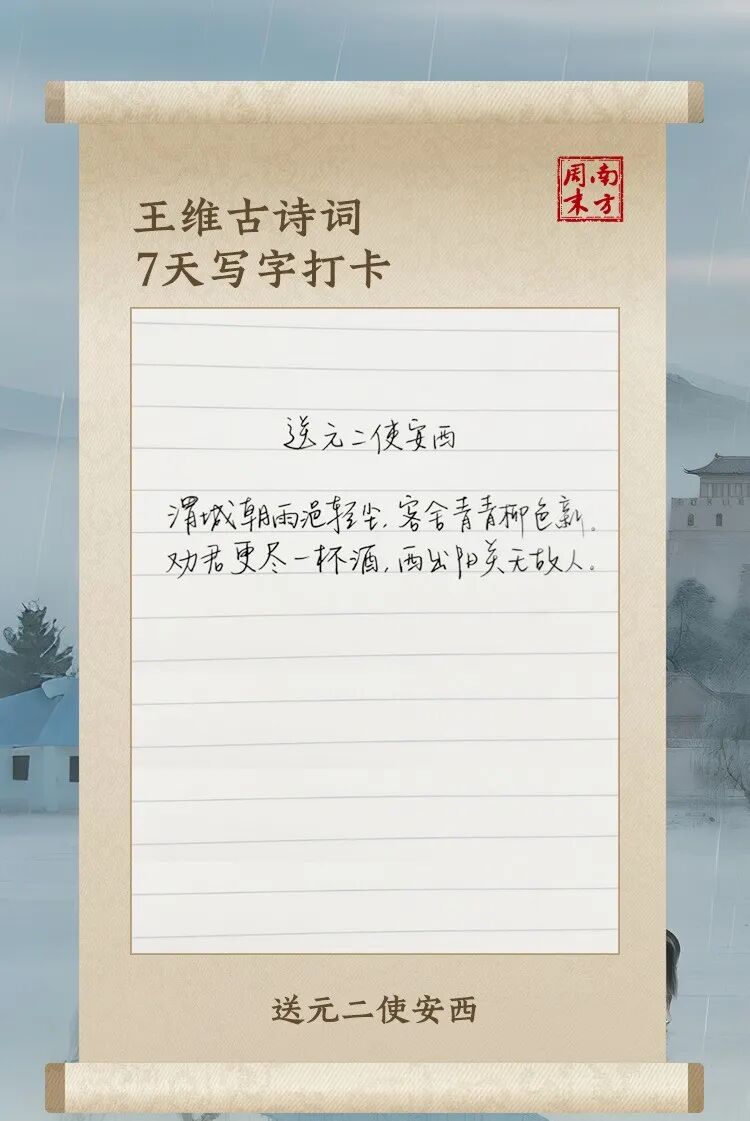 王维古诗词
7天写字打卡
南方
周末
送元二使安西
渭城朝雨浥轻尘,客舍青青柳色新。
劝君更尽一杯酒,西出阳关无故人。
送元二使安西